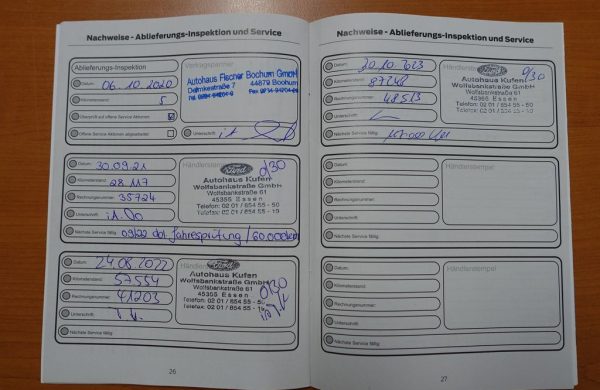 Nachweise - Ablieferungs-Inspektion und Service
Ablieferungs-Inspektion
Datum: 06.10.2020
Kilometerstand: 5
Überprüft auf offene Service Aktionen
Offene Service Aktionen abgearbeitet
Vertragspartner
Autohaus Fischer Bochum GmbH
44879 Bochum
Unterschrift:
Datum: 30.09.21
Kilometerstand: 28.117
Rechnungsnummer: 35724
Unterschrift:
Nächste Service fällig: 09/22 od. Jahresprüfung / 60.000km
Händlerstempel
Ford
Autohaus Kufen
Wolfsbankstraße GmbH
Wolfsbankstraße 61
45355 Essen
Telefon: 02 01 / 854 55 - 50
Telefax: 02 01 / 854 55 - 19
Datum: 24.08.2022
Kilometerstand: 57554
Rechnungsnummer: 41203
Unterschrift:
Nächste Service fällig:
Händlerstempel
Ford
Autohaus Kufen
Wolfsbankstraße GmbH
Wolfsbankstraße 61
45355 Essen
Telefon: 02 01 / 854 55 - 50
Telefax: 02 01 / 854 55 - 19
26
Nachweise - Ablieferungs-Inspektion und Service
Datum: 20.10.2023
Kilometerstand:
Rechnungsnummer: 48513
Unterschrift:
Nächste Service fällig:
Händlerstempel
Ford
Autohaus Kufen
Wolfsbankstraße GmbH
Wolfsbankstraße 61
45355 Essen
Telefon: 02 01 / 854 55 - 50
Datum:
Kilometerstand:
Rechnungsnummer:
Unterschrift:
Nächste Service fällig:
Händlerstempel
Datum:
Kilometerstand:
Rechnungsnummer:
Unterschrift:
Nächste Service fällig:
Händlerstempel
27